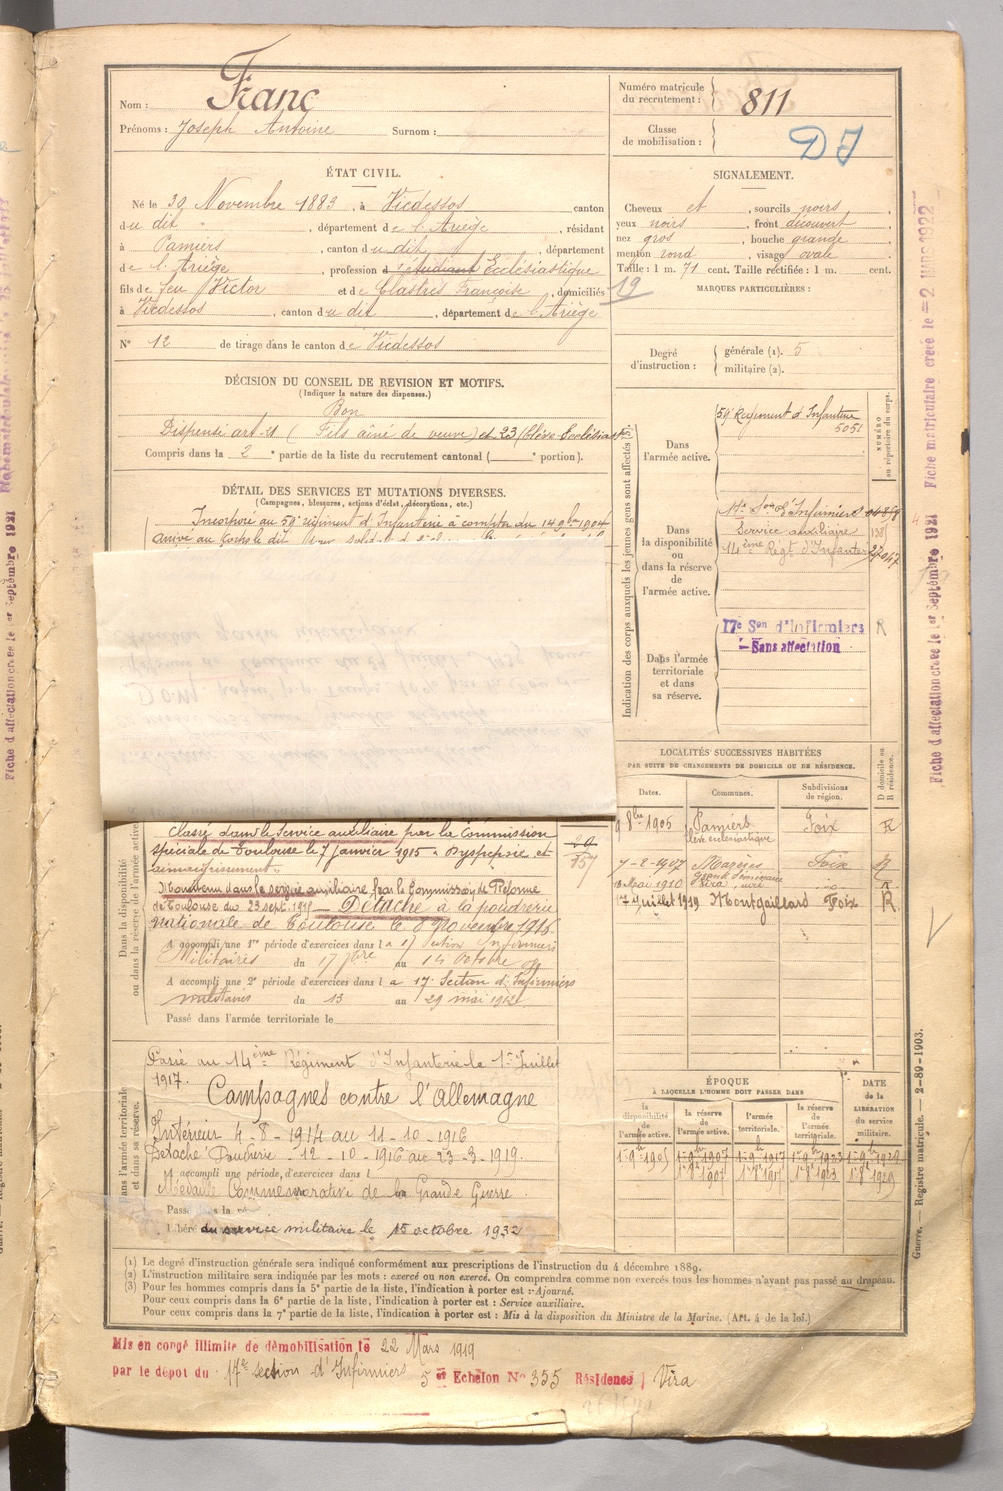 Nom : Franc
Prénoms : Joseph Antoine Surnom :
Numéro matricule du recrutement : 811
Classe de mobilisation :
DJ
ÉTAT CIVIL.
Né le 30 Novembre 1883, à Vicdessos canton
du dit, département de l'Ariège, résidant
à Pamiers, canton du dit, département
de l'Ariège, profession d'étudiant Ecclésiastique
fils de feu Victor et de Clastres Françoise, domiciliés
à Vicdessos, canton du dit, département de l'Ariège
N° 12 de tirage dans le canton de Vicdessos
SIGNALEMENT.
Cheveux et, sourcils noirs,
yeux noirs, front découvert
nez gros, bouche grande,
menton rond, visage ovale.
Taille : 1 m. 71 cent. Taille rectifiée : 1 m. cent.
19
MARQUES PARTICULIÈRES :
Degré d'instruction : générale (1). 5
militaire (2).
DÉCISION DU CONSEIL DE REVISION ET MOTIFS.
(Indiquer la nature des dispenses.)
Bon
Dispensé art. 21 (Fils aîné de veuve) et 23 (Elève Ecclésiast
Compris dans la 2e partie de la liste du recrutement cantonal ( e portion).
DÉTAIL DES SERVICES ET MUTATIONS DIVERSES.
(Campagnes, blessures, actions d'éclat, décorations, etc.)
Incorporé au 59e régiment d'Infanterie à compter du 14 9bre 1904
Arrivé au corps le dit
Indication des corps auxquels les jeunes gens sont affectés
NUMÉRO au répertoire du corps.
Dans l'armée active.
59e Régiment d'Infanterie
5051
Dans la disponibilité ou dans la réserve de l'armée active.
17e Son d'Infirmiers
Service auxiliaire
14ème Régt d'Infanterie 27047
Dans l'armée territoriale et dans sa réserve.
17e Son d'Infirmiers R
Sans affectation
LOCALITÉS SUCCESSIVES HABITÉES
PAR SUITE DE CHANGEMENTS DE DOMICILE OU DE RÉSIDENCE.
Dates. Communes. Subdivisions de région. D domicile ou R résidence.
8bre 1905 Pamiers Foix R
élève ecclésiastique
7-2-1907 Mazères Foix R
18 Mai 1910 Vira, curé
17 Juillet 1919 Montgaillard Foix R
Dans la disponibilité ou dans la réserve de l'armée active
Classé dans le Service auxiliaire par la Commission
spéciale de Toulouse le 7 Janvier 1915 « Dyspepsie et
amaigrissement ».
Maintenu dans le service auxiliaire par la Commission de Réforme
de Toulouse du 23 sept. 1915 — Détaché à la poudrerie
nationale de Toulouse le 8 Novembre 1916
A accompli une 1re période d'exercices dans la 17 Section Infirmiers
Militaires du 17 7bre au 14 Octobre
A accompli une 2e période d'exercices dans la 17e Section d'Infirmiers
militaires du 13 au 29 mai 1912
Passé dans l'armée territoriale le
Dans l'armée territoriale et dans sa réserve.
Passé au 14ème Régiment d'Infanterie le 1er Juillet
1917.
Campagnes contre l'Allemagne
Intérieur 4-8-1914 au 11-10-1916
Détaché Poudrerie - 12-10-1916 au 23-3-1919.
A accompli une période d'exercices dans l
Médaille Commémorative de la Grande Guerre
Libéré du service militaire le 15 octobre 1932
ÉPOQUE
À LAQUELLE L'HOMME DOIT PASSER DANS
la disponibilité de l'armée active. la réserve de l'armée active. l'armée territoriale. la réserve de l'armée territoriale.
DATE de la LIBÉRATION du service militaire.
(1) Le degré d'instruction générale sera indiqué conformément aux prescriptions de l'instruction du 4 décembre 1889.
(2) L'instruction militaire sera indiquée par les mots : exercé ou non exercé. On comprendra comme non exercés tous les hommes n'ayant pas passé au drapeau.
(3) Pour les hommes compris dans la 5e partie de la liste, l'indication à porter est : Ajourné.
Pour ceux compris dans la 6e partie de la liste, l'indication à porter est : Service auxiliaire.
Pour ceux compris dans la 7e partie de la liste, l'indication à porter est : Mis à la disposition du Ministre de la Marine. (Art. 4 de la loi.)
Mis en congé illimité de démobilisation le 22 Mars 1919
par le dépôt du 17e section d'Infirmiers 5 er Echelon N° 355 Résidence Vira
Guerre. — Registre matricule. — 2-89-1903.
Fiche d'affectation créée le 1er Septembre 1921
Fiche matriculaire créée le = 2 MARS 1922